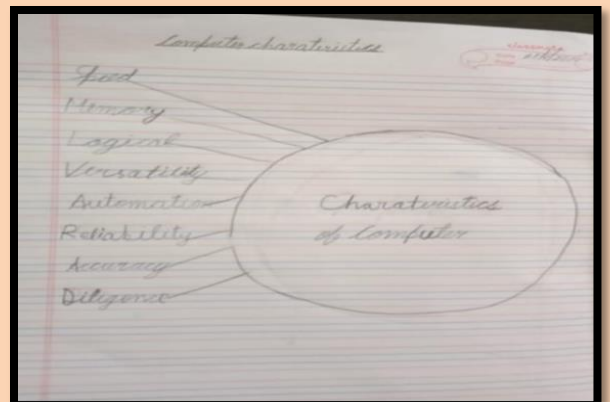 Computer charateristics
Speed
Memory
Logical
Versatility
Automation
Reliability
Accuracy
Diligence
Charateristics
of Computer